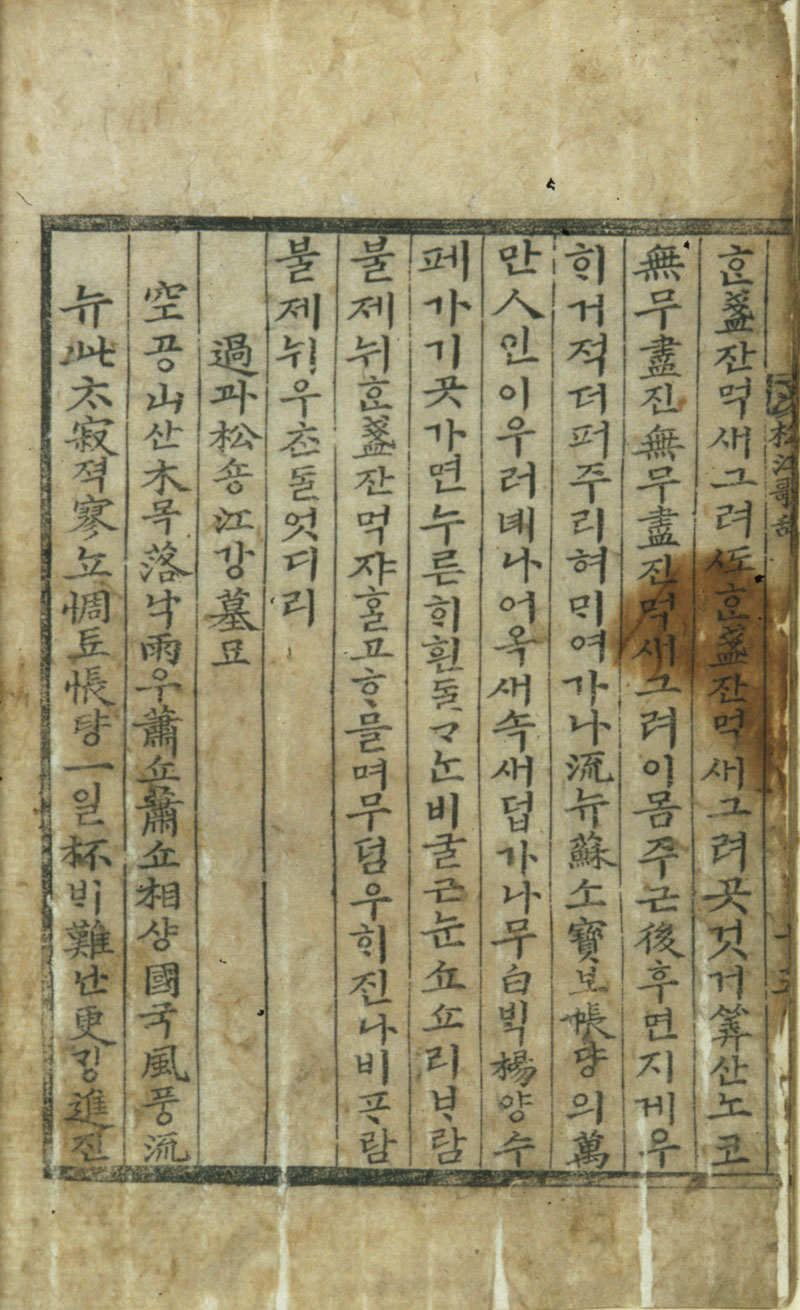 松江
ᄒᆞᆫ盞잔먹새그려ᄯᅩᄒᆞᆫ盞잔먹새그려곳것거筭산노코
無무盡진無무盡진먹새그려이몸주근後후면지게우
ᄒᆡ거적더퍼주리혀ᄆᆡ여가나流뉴蘇소寶보帳댱의萬
만人인이우러녜나어옥새속새덥가나무白ᄇᆡᆨ楊양수
페가기곳가면누른ᄒᆡ흰ᄃᆞᆯᄀᆞᄂᆞᆫ비굴근눈쇼쇼리ᄇᆞ람
불제뉘ᄒᆞᆫ盞잔먹쟈ᄒᆞᆯ고ᄒᆞ믈며무덤우ᄒᆡ진나비프람
불제뉘우ᄎᆞᆫᄃᆞᆯ엇디리
過과松숑江강墓묘
空공山산木목落낙雨우蕭쇼蕭쇼相샹國국風풍流
뉴此ᄎᆞ寂젹寥뇨惆튜悵댱一일杯ᄇᆡ難난更ᄀᆡᆼ進진